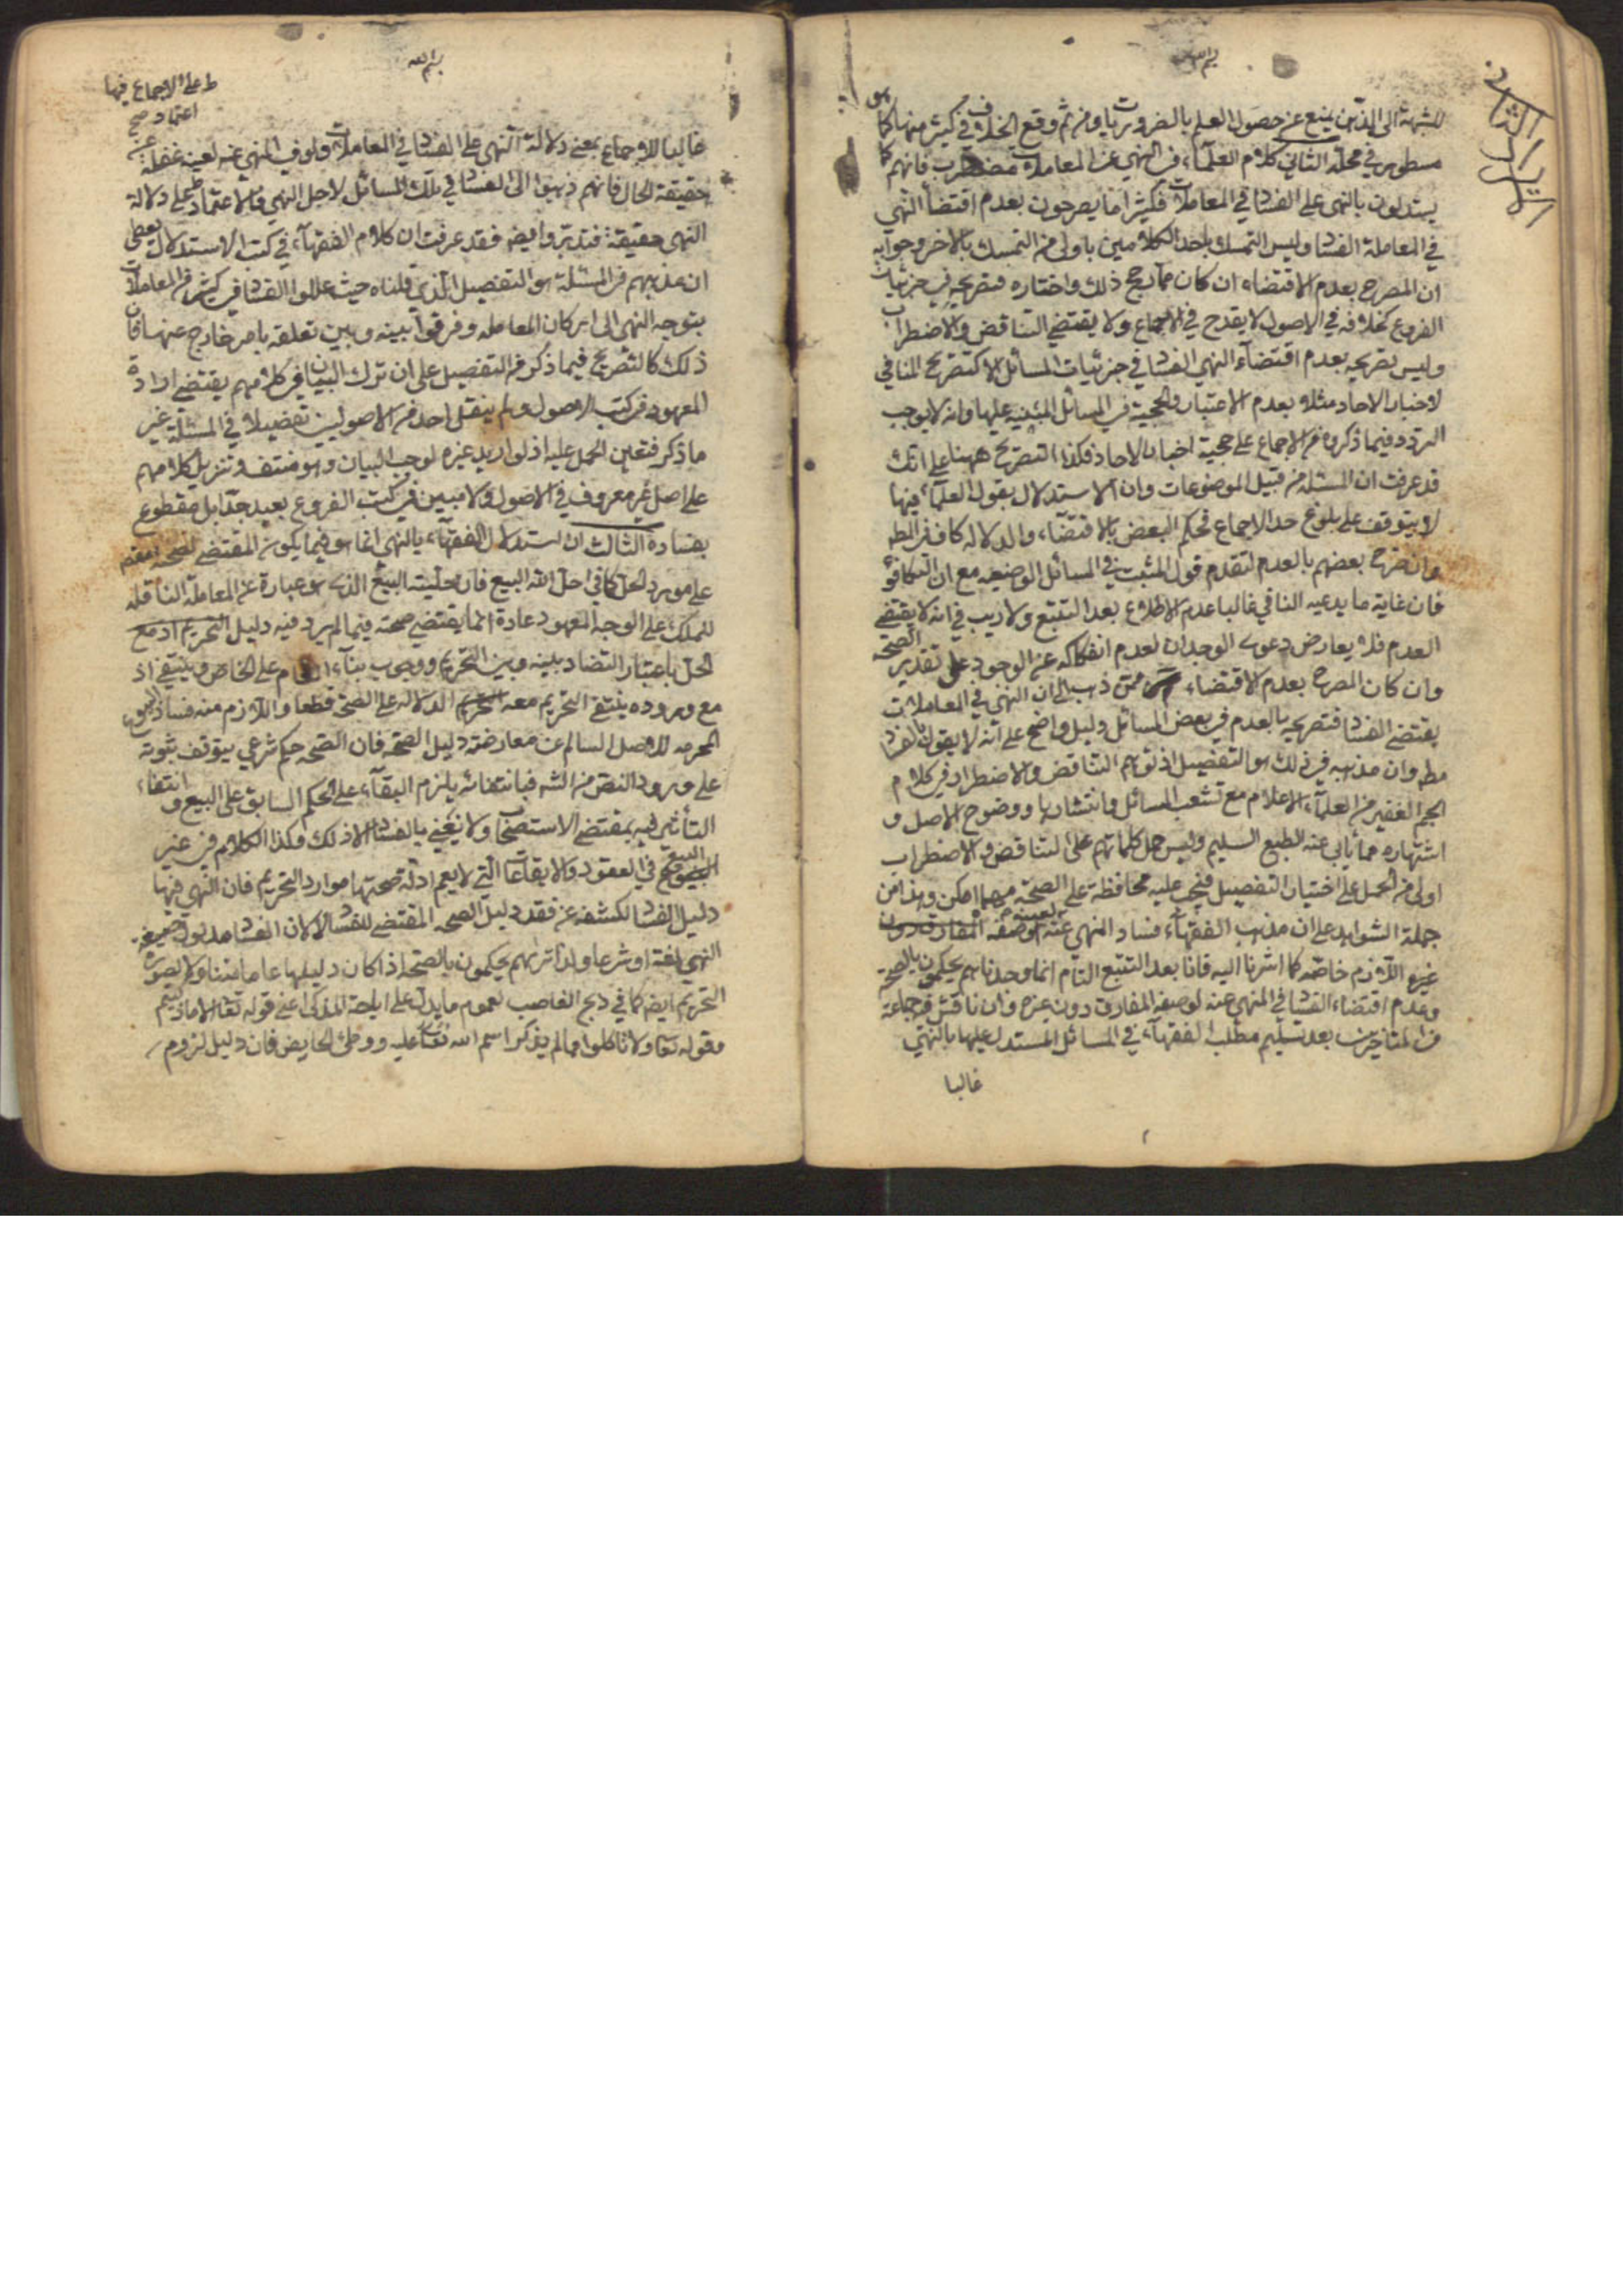 بسم الله
للشبهة الى الذين يمنع عن حصول العلم بالضروريات ومن ثم وقع الخلاف في كثير منها كما هو
مسطور في محله الثاني كلام العلماء في النهي عن المعاملات مضطرب فانهم كما
يستدلون بالنهى على الفساد في المعاملات فكثيرا ما يصرحون بعدم اقتضا النهي
في المعاملة الفساد وليس التمسك باحد الكلامين باولى من التمسك بالاخر وجوابه
ان المصرح بعدم الاقتضاء ان كان ممن يرجح ذلك واختاره فتصريحه في جزئيات
الفروع كخلافه في الاصول لا يقدح في الاجماع ولا يقتضي التناقض والاضطراب
وليس تصريحه بعدم اقتضاء النهي الفساد في جزئيات المسائل الا كتصريح المنافي
لاخبار الاحاد مثلا بعدم الاعتبار والحجية في المسائل المبنية عليها وانه لا يوجب
التردد فيما ذكروه من الاجماع على حجية اخبار الاحاد فكذا التصريح ههنا على انك
قد عرفت ان المسئلة من قبيل الموضوعات وان الاستدلال بقول العلماء فيها
لا يتوقف على بلوغ حد الاجماع فحكم البعض بالاقتضاء والدلالة كاف في المطلوب
وان صرح بعضهم بالعدم لتقدم قول المثبت في المسائل الوضعيه مع ان التكافؤ
فان غاية ما يدعيه النافي غالبا عدم الاطلاع بعد التتبع ولا ريب في انه لا يقتضي
العدم فلا يعارض دعوى الوجدان لعدم انفكاكه عن الوجود على تقدير الصحة
وان كان المصرح بعدم الاقتضاء ممن ذهب الى ان النهي في المعاملات
يقتضي الفساد فتصريحه بالعدم في بعض المسائل دليل واضح على انه لا يقول بالفساد
مطه وان مذهبه في ذلك هو التفصيل اذ توهم التناقض والاضطراب في كلام
الجم الغفير من العلماء الاعلام مع تشعب المسائل وانتشارها ووضوح الاصل و
اشتهاره مما يأبى عنه الطبع السليم وليس حمل كلماتهم على التناقض والاضطراب
اولى من الحمل على اختيار التفصيل فيجب عليه محافظة على الصحة مهما امكن وهذا من
جملة الشواهد على ان مذهب الفقهاء فساد المنهي عنه لوصفه المفارق دون
غيره اللازم خاصه كما اشرنا اليه فانا بعد التتبع التام انما وجدناهم يحكمون بالصحة
وعدم اقتضاء الفساد في المنهي عنه لوصفه المفارق دون غيره وان ناقش في جماعة
من المتاخرين بعد تسليم مطلب الفقهاء في المسائل المستدل عليها بالنهي
غالبا
بسم الله
غالبا للاجماع بمعنى دلالة النهي على الفساد في المعاملات ولو في المنهي عنه لعينه غفلة عن
حقيقة الحال فانهم ذهبوا الى الفساد في تلك المسائل لاجل النهي والاعتماد على دلالة
النهى حقيقة فتدبر وايضه فقد عرفت ان كلام الفقهاء في كتب الاستدلال يعطي
ان مذهبهم في المسئلة هو التفصيل الذي قلناه حيث عللوا الفساد في كثير من المعاملات
بتوجه النهى الى اركان المعامله وفرقوا بينه وبين تعلقه بامر خارج عنها فان
ذلك كالتصريح فيما ذكر من التفصيل على ان ترك البيان في كلامهم يقتضي ارادة
المعهود في كتب الاصول ولم ينقل احد من الاصوليين تفصيلا في المسئلة غير
ما ذكر فتعين الحمل عليه اذ لو اريد غيره لوجب البيان وهو منتف وتنزيل كلامهم
على اصل غير معروف في الاصول ولا مبين في كتب الفروع بعيد جدا بل مقطوع
بفساده الثالث ان استدلال الفقهاء بالنهي انما هو فيما يكون المقتضي لصحته
على مورد الحل كما في احل الله البيع فان حلية البيع الذي هو عبارة عن المعاملة الناقله
للملك على الوجه المعهود عادة انما يقتضي صحته فيما لم يرد فيه دليل التحريم اذ مع
الحل باعتبار التضاد بينه وبين التحريم ووجوب بناء العام على الخاص وينتفي اذ
مع وروده ينتفي التحريم معه الدلاله على الصحة قطعا واللازم منه فساد البيوع
المحرمه للاصل السالم عن معارضة دليل الصحه فان الصحه حكم شرعي يتوقف ثبوته
على ورود النص من الشه فبانتفائه يلزم البقاء على الحكم السابق على البيع و انتفاء
التأثير فيه بمقتضى الاستصحاب ولا نعني بالفساد الا ذلك وهكذا الكلام في غير
البيع في العقود والايقاعات التي لا يعم ادلة صحتها موارد التحريم فان النهي فيها
دليل الفساد لكشفه عن فقد دليل الصحه المقتضي للفساد لا كان الفساد مدلول صيغة
النهي لغة او شرعا ولذا تريهم يحكمون بالصحة اذا كان دليلها عاما متناولا لصورة
التحريم ايضه كما في ذبح الغاصب لعموم ما يدل على اباحة المذكى اعني قوله تعا الا ما ذكيتم
وقوله تعا ولا تاكلوا مما لم يذكر اسم الله تعا عليه ووطئ الحايض فان دليل لزوم